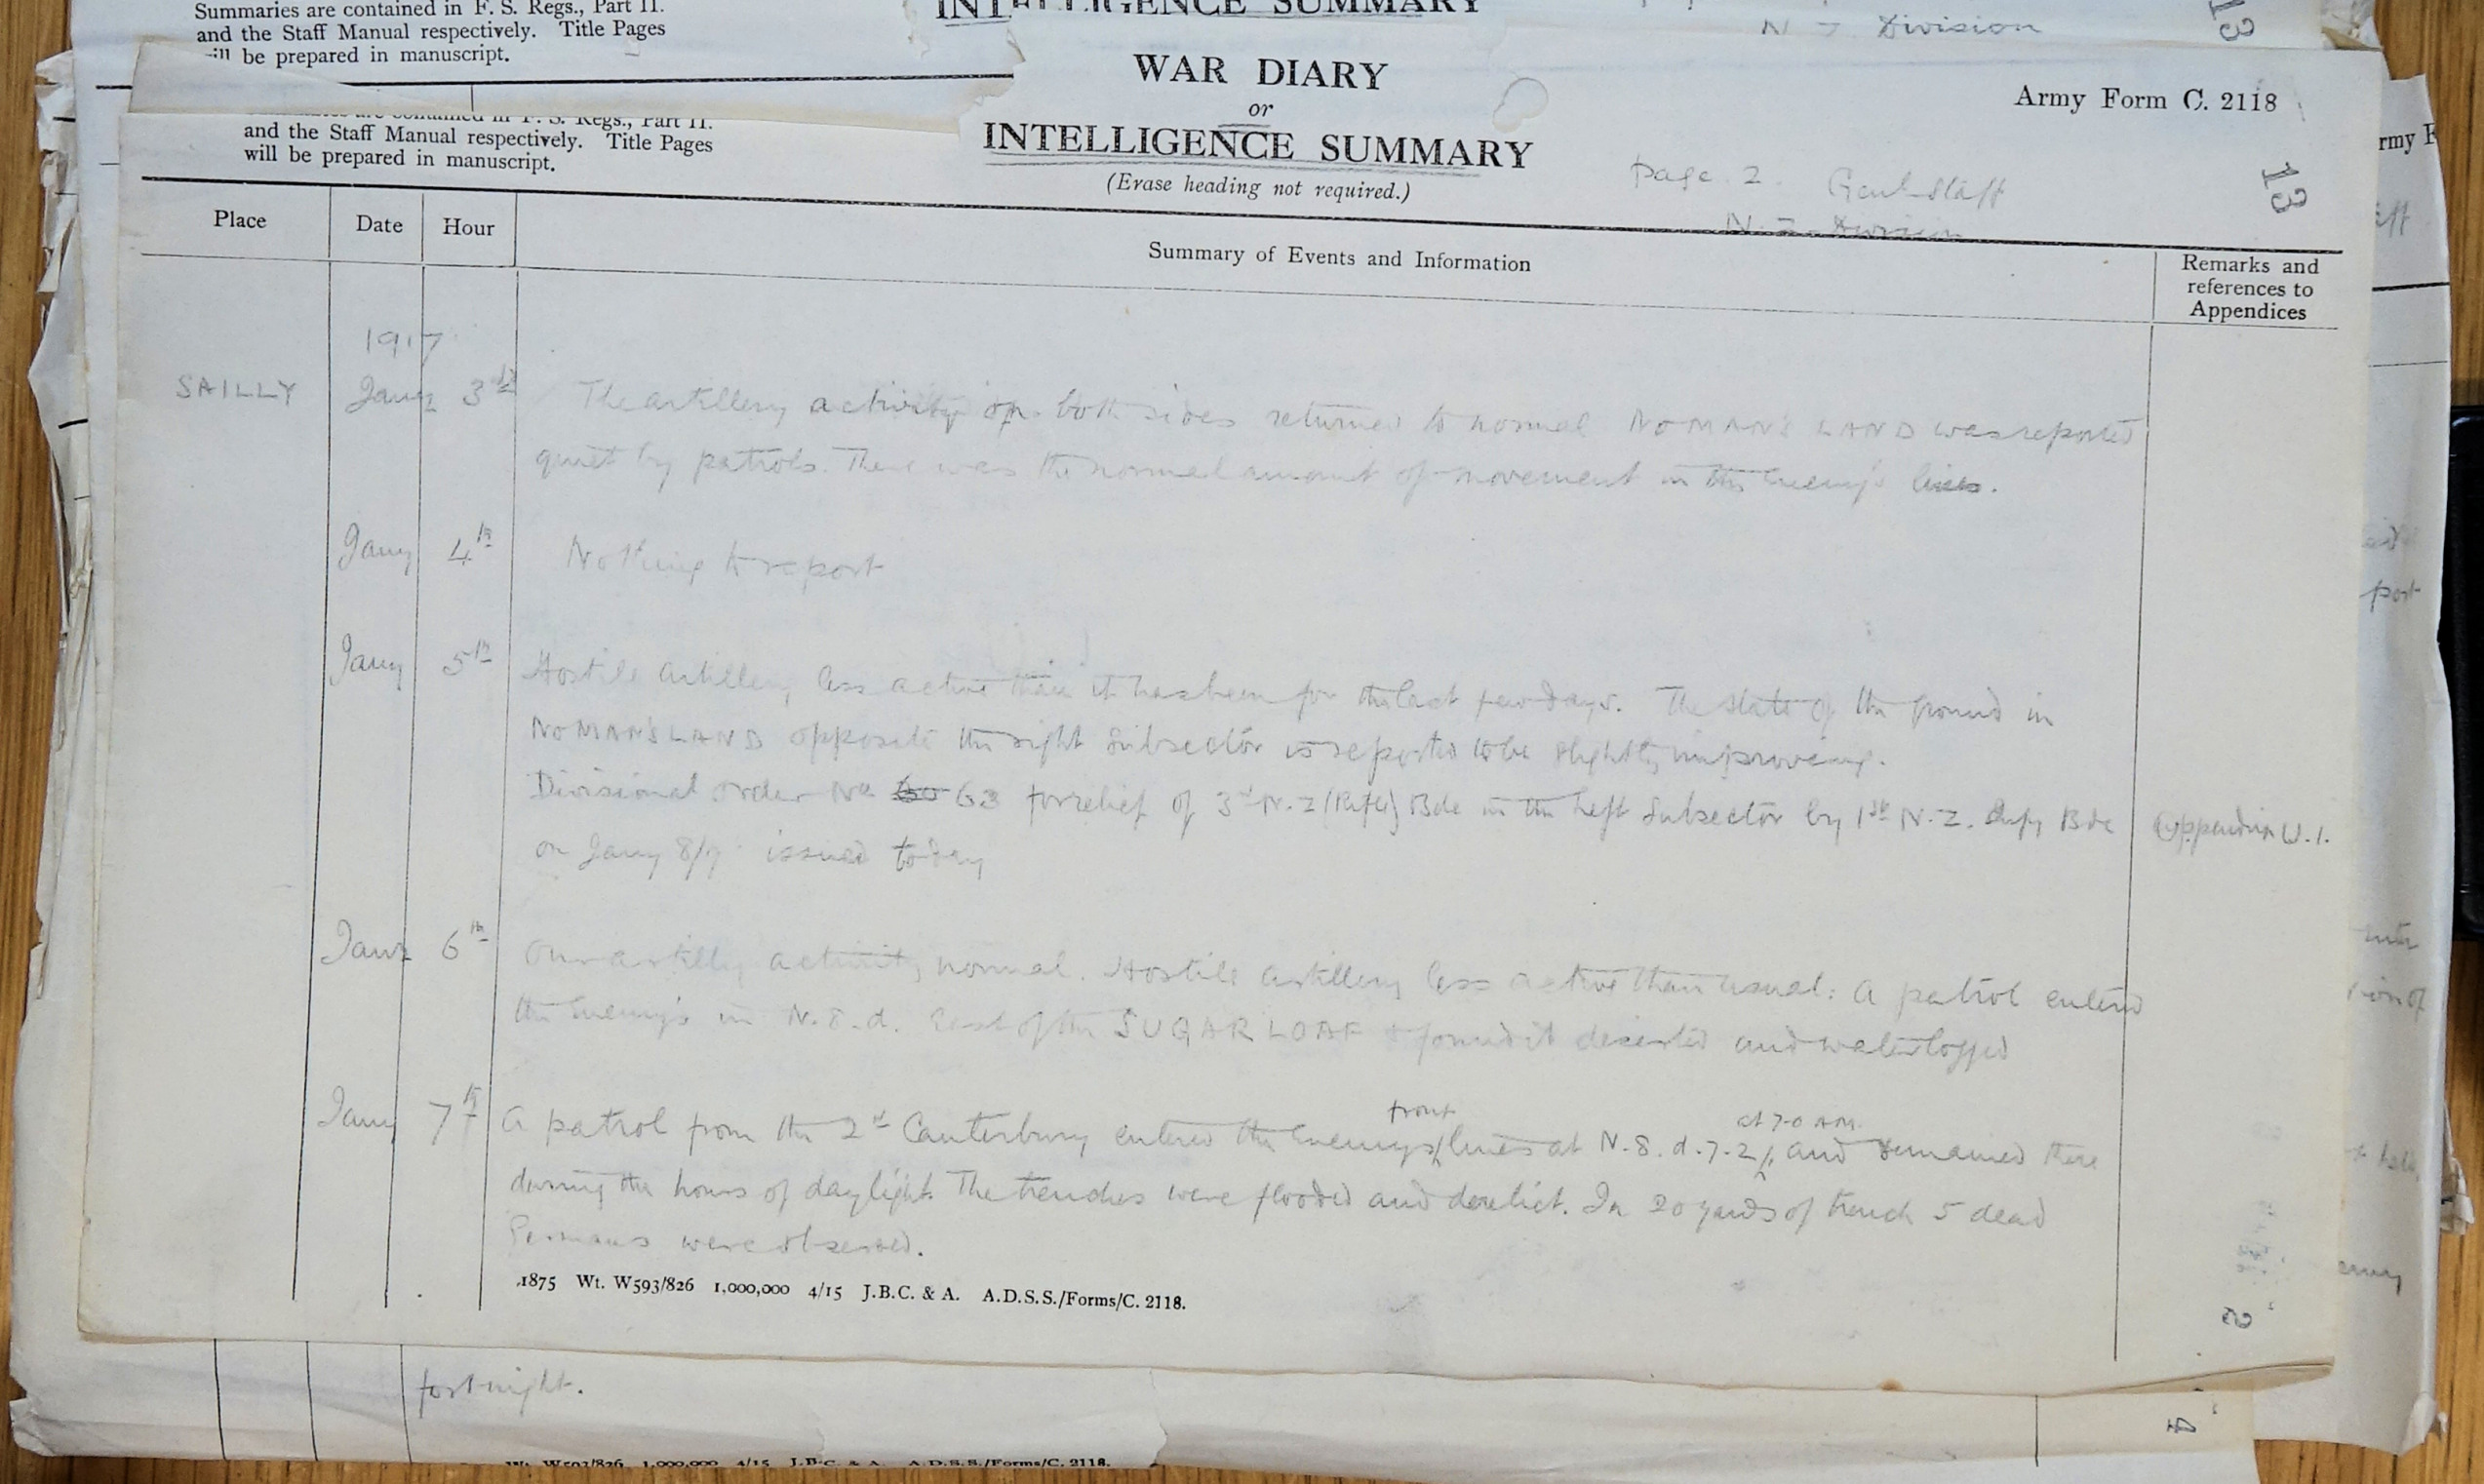 Summaries are contained in F. S. Regs., Part II.
and the Staff Manual respectively. Title Pages
will be prepared in manuscript.
INTELLIGENCE SUMMARY
N Z Division
13
and the Staff Manual respectively. Title Pages
will be prepared in manuscript.
WAR DIARY
or
INTELLIGENCE SUMMARY
(Erase heading not required.)
Army Form C. 2118
page 2. Genl Staff
N. Z. Division
13
Place Date Hour Summary of Events and Information Remarks and references to Appendices
1917
SAILLY Jany 3rd The artillery activity on both sides returned to normal NO MAN'S LAND was reported
quiet by patrols. There was the normal amount of movement in the Enemy's lines.
Jany 4th Nothing to report
Jany 5th Hostile Artillery less active than it has been for the last few days. The state of the ground in
NO MAN'S LAND opposite the right Subsector is reported to be slightly improving.
Divisional order No 63 for relief of 3rd N.Z (Rifle) Bde in the Left Subsector by 1st N.Z. Infy Bde Appendix W.1.
on Jany 8/9 issued today
Jany 6th Our artillery activity normal. Hostile Artillery less active than usual: A patrol entered
the Enemy's in N.8.d. East of the SUGAR LOAF & found it deserted and waterlogged
Jany 7th A patrol from the 2nd Canterbury entered the Enemy's front lines at N.8.d.7.2½ at 7-0 AM. and remained there
during the hours of daylight. The trenches were flooded and derelict. In 20 yards of trench 5 dead
Germans were observed.
1875 Wt. W593/826 1,000,000 4/15 J.B.C. & A. A.D.S.S./Forms/C. 2118.
2
fortnight.
4
Wt. W593/826 1,000,000 4/15 J.B.C. & A. A.D.S.S./Forms/C. 2118.